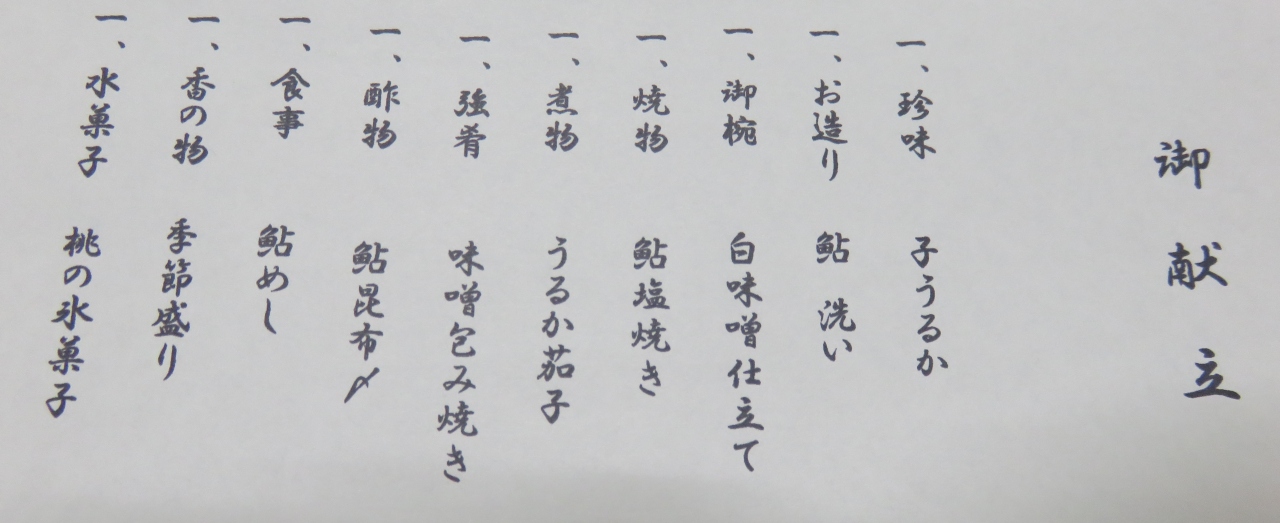 御献立
一、珍味　子うるか
一、お造り　鮎　洗い
一、御椀　白味噌仕立て
一、焼物　鮎塩焼き
一、煮物　うるか茄子
一、強肴　味噌包み焼き
一、酢物　鮎昆布〆
一、食事　鮎めし
一、香の物　季節盛り
一、水菓子　桃の氷菓子